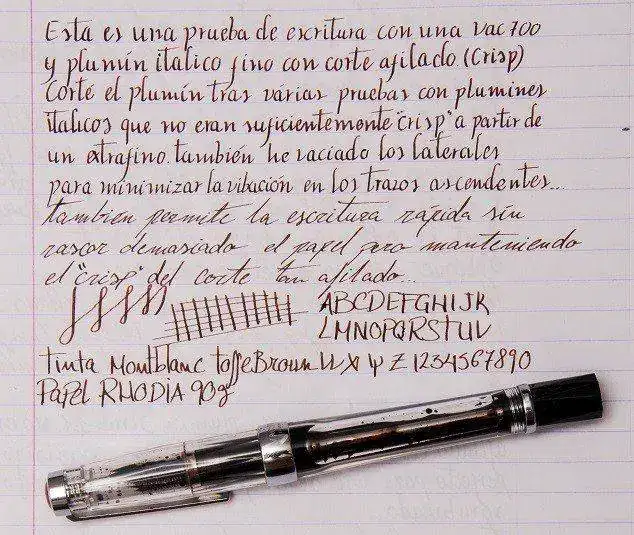 Esta es una prueba de escritura con una Vac700
y plumín italico fino con corte afilado. (Crisp)
Corté el plumín tras varias pruebas con plumines
italicos que no eran suficientemente "crisp" a partir de
un extrafino. también he vaciado los laterales
para minimizar la vibación en los trazos ascendentes...
tambien permite la escritura rápida sin
rascar demasiado el papel pero manteniendo
el "crisp" del corte tan afilado...
ABCDEFGHIJK
LMNOPQRSTUV
tinta Montblanc toffeeBrown W X Y Z 1234567890
Papel RHODIA 90g